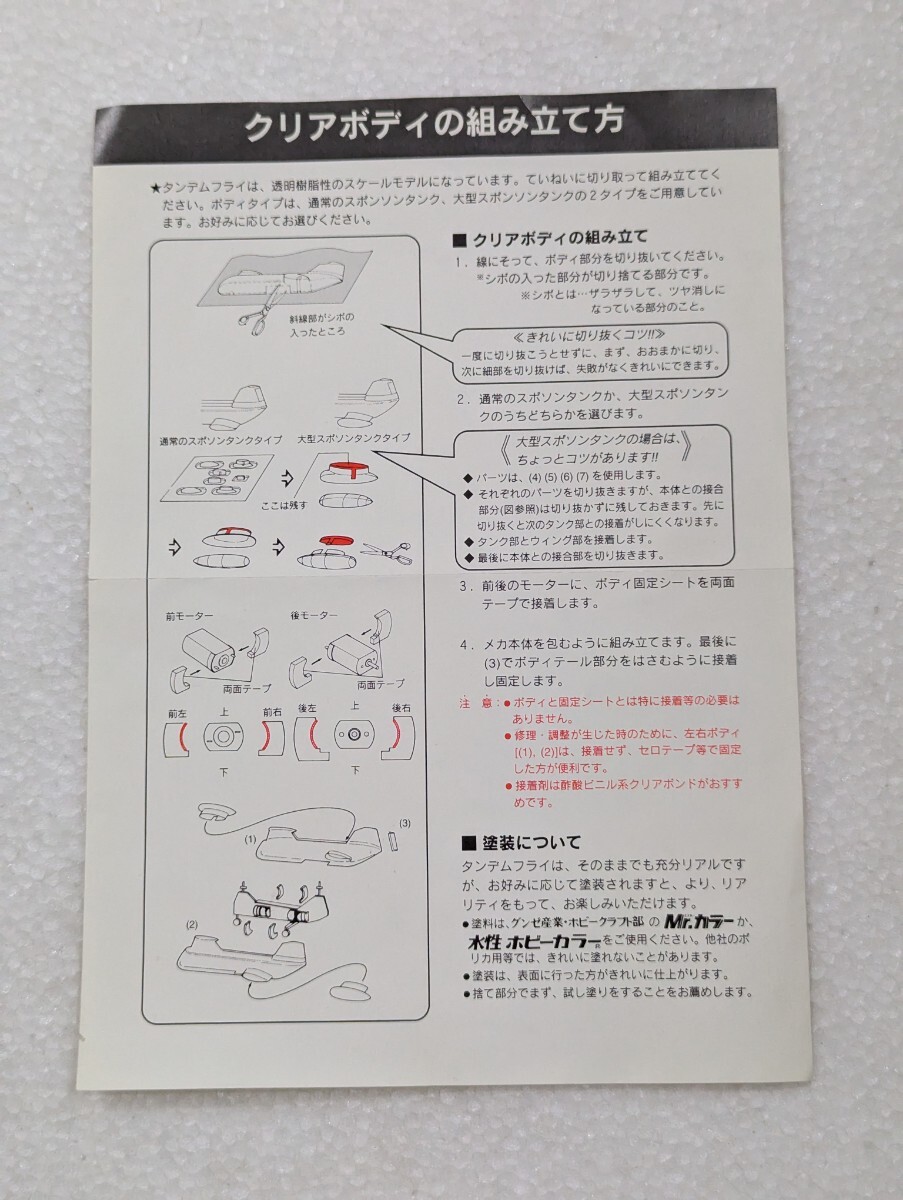 クリアボディの組み立て方
★タンデムフライは、透明樹脂性のスケールモデルになっています。ていねいに切り取って組み立ててく
ださい。ボディタイプは、通常のスポンソンタンク、大型スポンソンタンクの2タイプをご用意してい
ます。お好みに応じてお選びください。
斜線部がシボの
入ったところ
通常のスポソンタンクタイプ
大型スポソンタンクタイプ
ここは残す
前モーター
後モーター
両面テープ
両面テープ
前左
上
前右
後左
上
後右
下
下
(1)
(3)
(2)
■ クリアボディの組み立て
1. 線にそって、ボディ部分を切り抜いてください。
※シボの入った部分が切り捨てる部分です。
※シボとは…ザラザラして、ツヤ消しに
なっている部分のこと。
≪きれいに切り抜くコツ!!≫
一度に切り抜こうとせずに、まず、おおまかに切り、
次に細部を切り抜けば、失敗がなくきれいにできます。
2. 通常のスポソンタンクか、大型スポソンタン
クのうちどちらかを選びます。
《大型スポソンタンクの場合は、
ちょっとコツがあります!!》
◆ パーツは、(4)(5)(6)(7)を使用します。
◆ それぞれのパーツを切り抜きますが、本体との接合
部分(図参照)は切り抜かずに残しておきます。先に
切り抜くと次のタンク部との接着がしにくくなります。
◆ タンク部とウィング部を接着します。
◆ 最後に本体との接合部を切り抜きます。
3. 前後のモーターに、ボディ固定シートを両面
テープで接着します。
4. メカ本体を包むように組み立てます。最後に
(3)でボディテール部分をはさむように接着
し固定します。
注 意:● ボディと固定シートとは特に接着等の必要は
ありません。
● 修理・調整が生じた時のために、左右ボディ
[(1), (2)]は、接着せず、セロテープ等で固定
した方が便利です。
● 接着剤は酢酸ビニル系クリアボンドがおすす
めです。
■ 塗装について
タンデムフライは、そのままでも充分リアルです
が、お好みに応じて塗装されますと、より、リア
リティをもって、お楽しみいただけます。
●塗料は、グンゼ産業・ホビークラフト部 の Mr.カラーか、
水性 ホビーカラーをご使用ください。他社のポ
リカ用等では、きれいに塗れないことがあります。
●塗装は、表面に行った方がきれいに仕上がります。
●捨て部分でまず、試し塗りをすることをお薦めします。